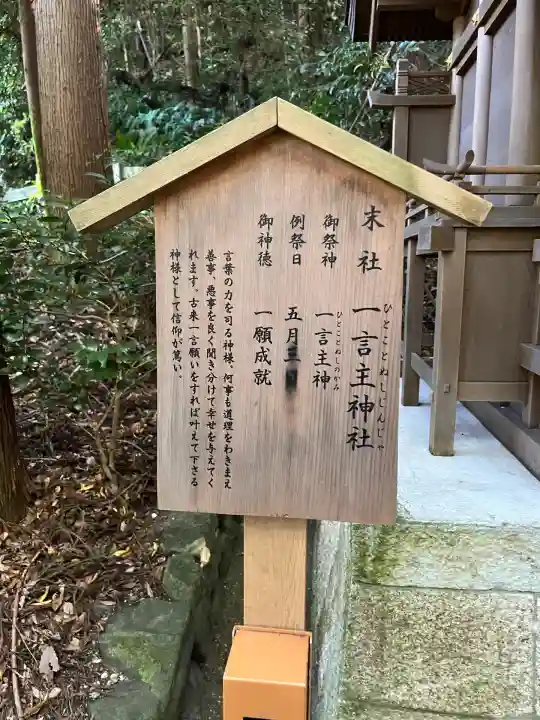 末社 一言主神社
ひとことぬしじんじゃ
御祭神 一言主神
ひとことぬしのかみ
例祭日 五月三日
御神徳 一願成就
言葉の力を司る神様、何事も道理をわきまえ
善事、悪事を良く聞き分けて幸せを与えてく
れます。古来一言願いをすれば叶えて下さる
神様として信仰が篤い。